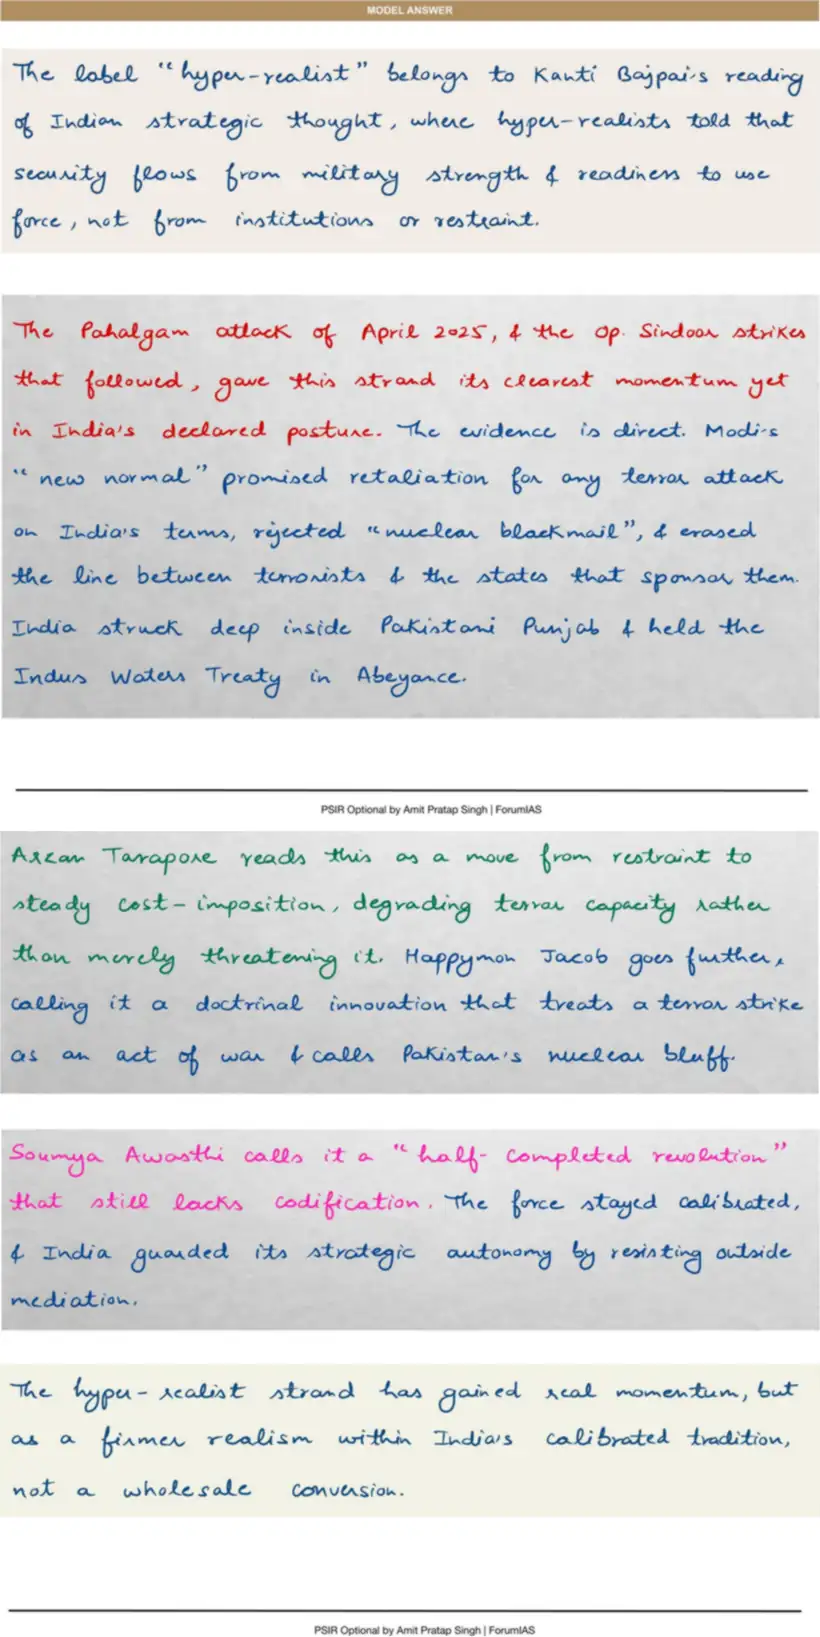 MODEL ANSWER
The label "hyper-realist" belongs to Kanti Bajpai's reading
of Indian strategic thought, where hyper-realists told that
security flows from military strength & readiness to use
force, not from institutions or restraint.
The Pahalgam attack of April 2025, & the Op. Sindoor strikes
that followed, gave this strand its clearest momentum yet
in India's declared posture. The evidence is direct. Modi's
"new normal" promised retaliation for any terror attack
on India's terms, rejected "nuclear blackmail", & erased
the line between terrorists & the states that sponsor them.
India struck deep inside Pakistani Punjab & held the
Indus Waters Treaty in Abeyance.
PSIR Optional by Amit Pratap Singh | ForumIAS
Arzan Tarapore reads this as a move from restraint to
steady cost-imposition, degrading terror capacity rather
than merely threatening it. Happymon Jacob goes further,
calling it a doctrinal innovation that treats a terror strike
as an act of war & calls Pakistan's nuclear bluff.
Soumya Awasthi calls it a "half-completed revolution"
that still lacks codification. The force stayed calibrated,
& India guarded its strategic autonomy by resisting outside
mediation.
The hyper-realist strand has gained real momentum, but
as a firmer realism within India's calibrated tradition,
not a wholesale conversion.
PSIR Optional by Amit Pratap Singh | ForumIAS